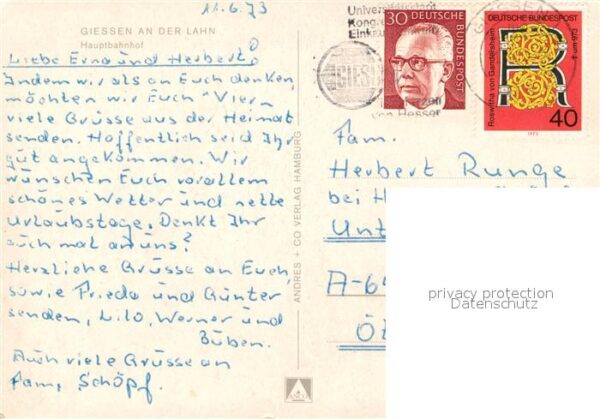 11.6.73
GIESSEN AN DER LAHN
Hauptbahnhof
Liebe Erna und Herbert!
Indem wir als an Euch denken,
möchten wir Euch "Viern"
viele Grüsse aus der Heimat
senden. Hoffentlich seid Ihr
gut angekommen. Wir
wünschen Euch vorallem
schönes Wetter und nette
Urlaubstage. Denkt Ihr
auch mal an uns?
Herzliche Grüsse an Euch,
sowie Frieda und Günter
senden, Lilo, Werner und
Buben.
Auch viele Grüsse an
Fam. Schöpf.
ANDRES + CO VERLAG HAMBURG
ANCO
Universitätsstadt
Kongre
Einkau
GIES
von Hessen
30 DEUTSCHE
BUNDESPOST
GIESSEN
DEUTSCHE BUNDESPOST
Roswitha von Gandersheim
R
1973
40
Fam.
Herbert Runge
bei H
Unt
A-64
Öt
privacy protection
Datenschutz